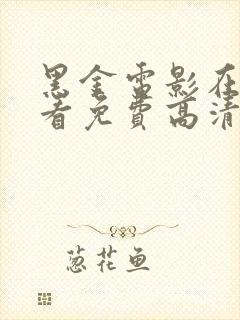 黑金雷影在
看免费高清
葱花鱼